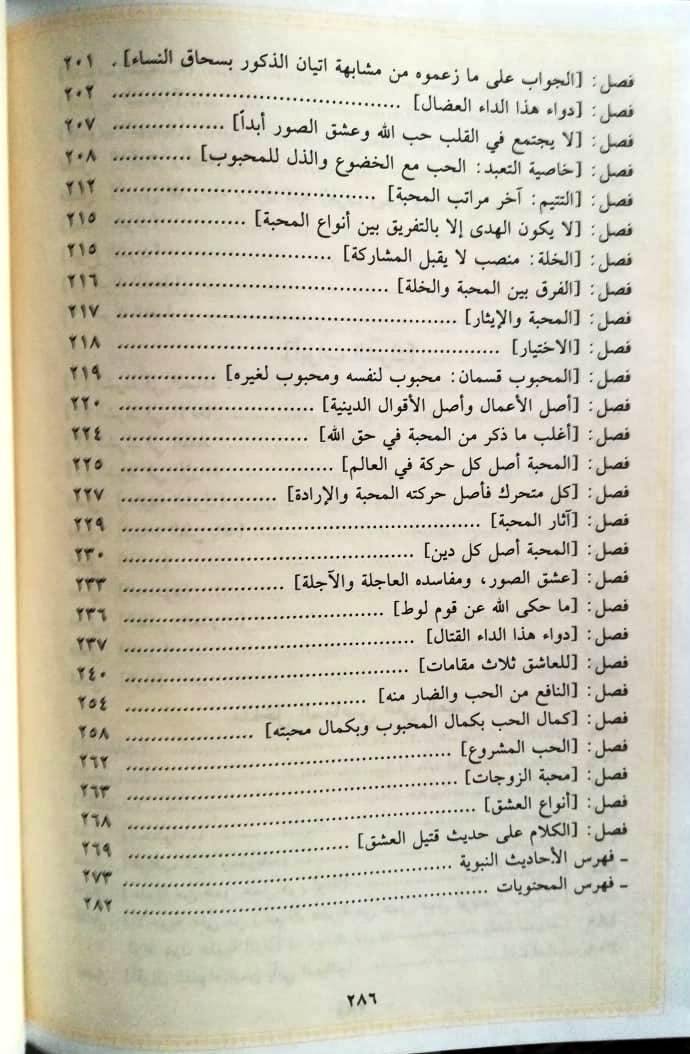 فصل: [الجواب على ما زعموه من مشابهة اتيان الذكور بسحاق النساء] . ٢٠١
فصل: [دواء هذا الداء العضال] ........................................ ٢٠٢
فصل: [لا يجتمع في القلب حب الله وعشق الصور أبداً] ................ ٢٠٧
فصل: [خاصية التعبد: الحب مع الخضوع والذل للمحبوب] ............ ٢٠٨
فصل: [التتيم: آخر مراتب المحبة] ..................................... ٢١٢
فصل: [لا يكون الهدى إلا بالتفريق بين أنواع المحبة] ................... ٢١٥
فصل: [الخلة: منصب لا يقبل المشاركة] ............................... ٢١٥
فصل: [الفرق بين المحبة والخلة] ...................................... ٢١٦
فصل: [المحبة والإيثار] ................................................ ٢١٧
فصل: [الاختيار] ...................................................... ٢١٨
فصل: [المحبوب قسمان: محبوب لنفسه ومحبوب لغيره] ............... ٢١٩
فصل: [أصل الأعمال وأصل الأقوال الدينية] ........................... ٢٢٠
فصل: [أغلب ما ذكر من المحبة في حق الله] ........................... ٢٢٤
فصل: [المحبة أصل كل حركة في العالم] ............................... ٢٢٥
فصل: [كل متحرك فأصل حركته المحبة والإرادة] ...................... ٢٢٧
فصل: [آثار المحبة] ................................................... ٢٢٩
فصل: [المحبة أصل كل دين] .......................................... ٢٣٠
فصل: [عشق الصور، ومفاسده العاجلة والآجلة] ....................... ٢٣٣
فصل: [ما حكى الله عن قوم لوط] ..................................... ٢٣٦
فصل: [دواء هذا الداء القتال] ......................................... ٢٣٧
فصل: [للعاشق ثلاث مقامات] ........................................ ٢٤٠
فصل: [النافع من الحب والضار منه] .................................. ٢٥٤
فصل: [كمال الحب بكمال المحبوب وبكمال محبته] ................... ٢٥٨
فصل: [الحب المشروع] ............................................... ٢٦٢
فصل: [محبة الزوجات] ............................................... ٢٦٣
فصل: [أنواع العشق] ................................................. ٢٦٨
فصل: [الكلام على حديث قتيل العشق] ............................... ٢٦٩
ـ فهرس الأحاديث النبوية .............................................. ٢٧٣
ـ فهرس المحتويات .................................................... ٢٨٢
٢٨٦